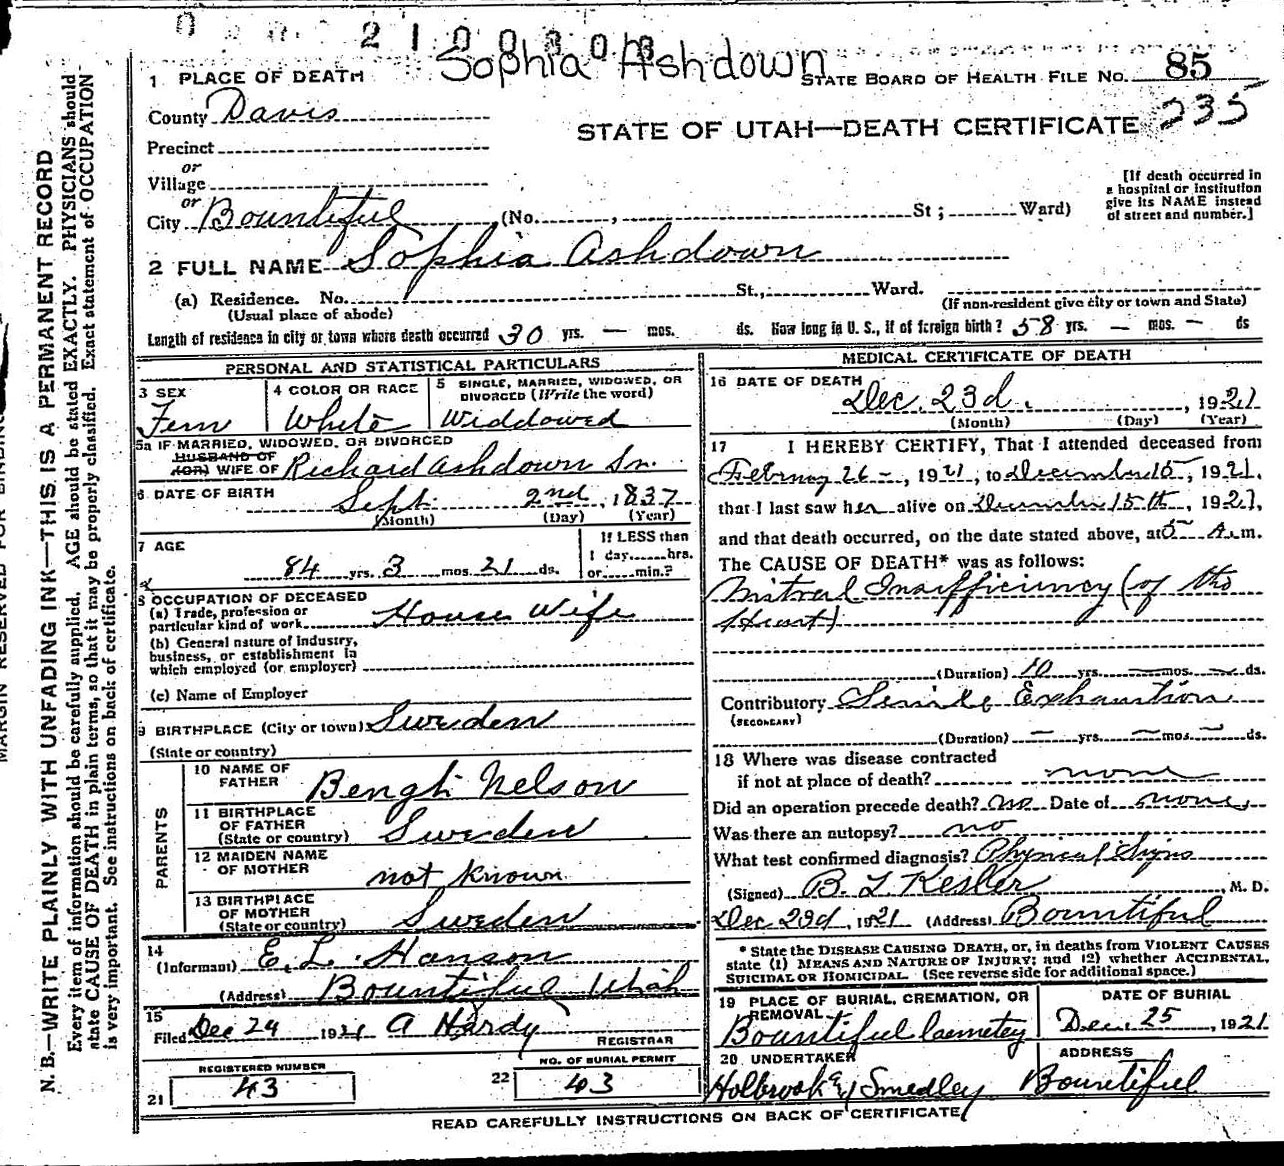 Sophia Ashdown
STATE BOARD OF HEALTH FILE NO. 85
235
1 PLACE OF DEATH
County Davis
STATE OF UTAH—DEATH CERTIFICATE
Precinct
or
Village
or
City Bountiful (No. , St; Ward)
[If death occurred in
a hospital or institution
give its NAME instead
of street and number.]
2 FULL NAME Sophia Ashdown
(a) Residence. No. St., Ward.
(Usual place of abode) (If non-resident give city or town and State)
Length of residence in city or town where death occurred 30 yrs. — mos. ds. How long in U. S., if of foreign birth? 58 yrs. — mos. — ds
PERSONAL AND STATISTICAL PARTICULARS
3 SEX Fem
4 COLOR OR RACE White
5 SINGLE, MARRIED, WIDOWED, OR
DIVORCED (Write the word)
Widdowed
5a IF MARRIED, WIDOWED, OR DIVORCED
HUSBAND OF
(OR) WIFE OF Richard Ashdown Sr.
6 DATE OF BIRTH Sept. 2nd, 1837
(Month) (Day) (Year)
7 AGE
84 yrs. 3 mos. 21 ds.
If LESS than
1 day......hrs.
or......min.?
8 OCCUPATION OF DECEASED
(a) Trade, profession or
particular kind of work House Wife
(b) General nature of industry,
business, or establishment in
which employed (or employer)
(c) Name of Employer
9 BIRTHPLACE (City or town) Sweden
(State or country)
PARENTS
10 NAME OF
FATHER Bengt Nelson
11 BIRTHPLACE
OF FATHER
(State or country) Sweden
12 MAIDEN NAME
OF MOTHER not known
13 BIRTHPLACE
OF MOTHER
(State or country) Sweden
14
(Informant) E. L. Hanson
(Address) Bountiful Utah
15
Filed Dec 24 1921 A Hardy
REGISTRAR
21 REGISTERED NUMBER
43
22 NO. OF BURIAL PERMIT
43
MEDICAL CERTIFICATE OF DEATH
16 DATE OF DEATH
Dec. 23d. , 1921
(Month) (Day) (Year)
17 I HEREBY CERTIFY, That I attended deceased from
Februay 26 – , 1921, to December 15, 1921.
that I last saw her alive on December 15th, 1921,
and that death occurred, on the date stated above, at 5 A.m.
The CAUSE OF DEATH* was as follows:
Mitral Insufficiency (of the
Heart)
(Duration) 10 yrs. — mos. — ds.
Contributory Senile Exhaustion
(SECONDARY)
(Duration) — yrs. — mos. — ds.
18 Where was disease contracted
if not at place of death? none
Did an operation precede death? no Date of none
Was there an autopsy? no
What test confirmed diagnosis? Physical Signs
(Signed) B. L. Kesler, M. D.
Dec 23d, 1921 (Address) Bountiful
* State the DISEASE CAUSING DEATH, or, in deaths from VIOLENT CAUSES
state (1) MEANS AND NATURE OF INJURY; and (2) whether ACCIDENTAL,
SUICIDAL OR HOMICIDAL. (See reverse side for additional space.)
19 PLACE OF BURIAL, CREMATION, OR
REMOVAL
Bountiful Cemetey
DATE OF BURIAL
Dec. 25, 1921
20 UNDERTAKER
Holbrook & Smedley
ADDRESS
Bountiful
READ CAREFULLY INSTRUCTIONS ON BACK OF CERTIFICATE
MARGIN RESERVED FOR BINDING
N. B.—WRITE PLAINLY WITH UNFADING INK—THIS IS A PERMANENT RECORD
Every item of information should be carefully supplied. AGE should be stated EXACTLY. PHYSICIANS should
state CAUSE OF DEATH in plain terms, so that it may be properly classified. Exact statement of OCCUPATION
is very important. See instructions on back of certificate.